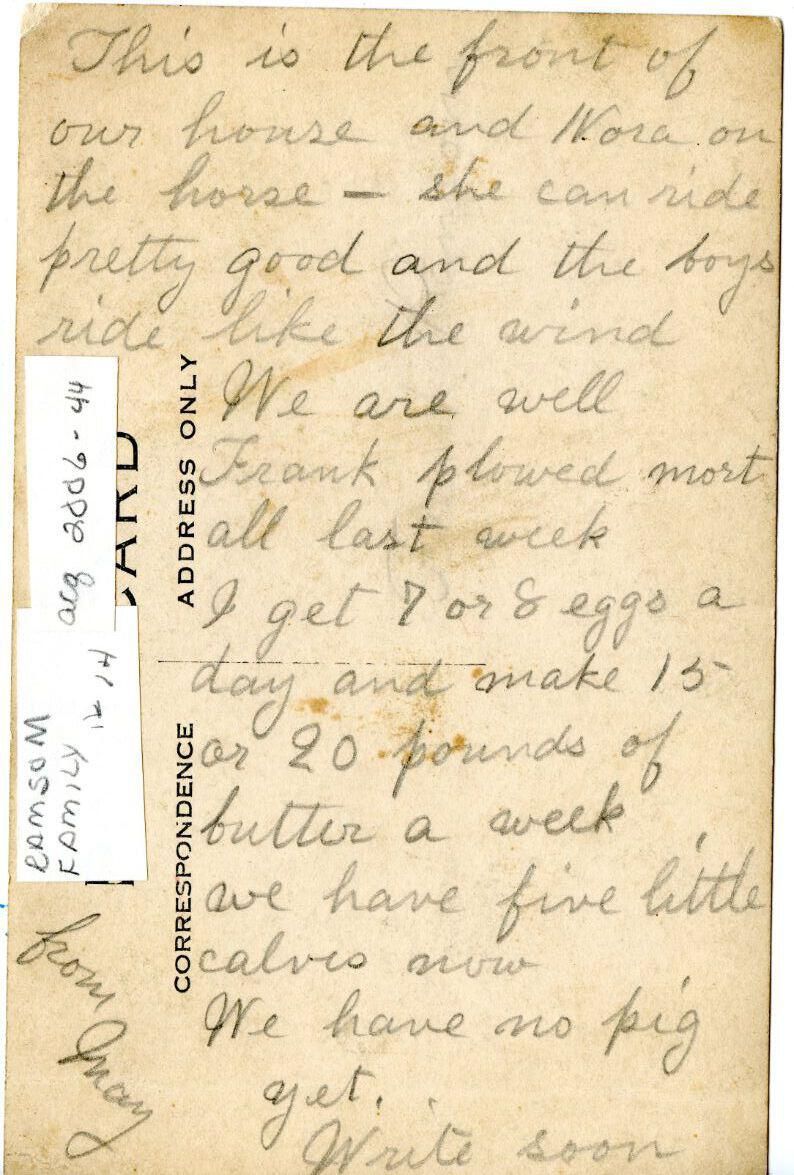 This is the front of
our house and Nora on
the horse – she can ride
pretty good and the boys
ride like the wind
We are well
Frank plowed most
all last week
I get 7 or 8 eggs a
day and make 15
or 20 pounds of
butter a week
we have five little
calves now
We have no pig
yet.
Write soon
from May
ADDRESS ONLY
CORRESPONDENCE
CARD
acq 2006-44
RAMSOM
FAMILY 12/14